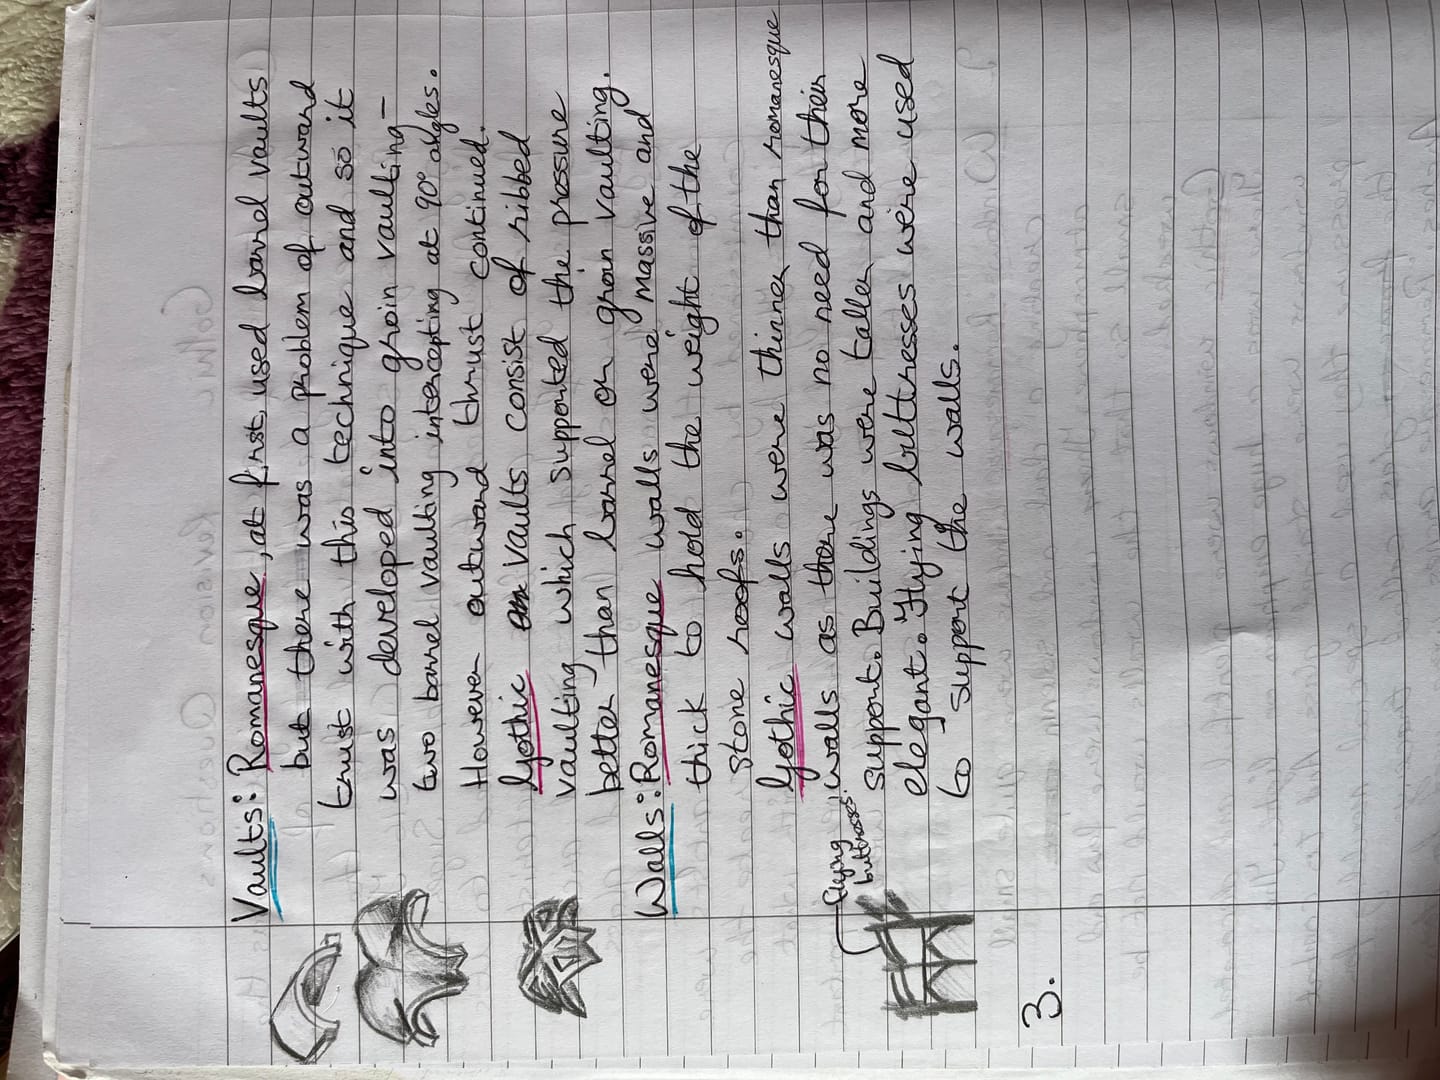 Vaults: Romanesque, at first, used barrel vaults
but there was a problem of outward
trust with this technique and so it
was developed into groin vaulting -
two barrel vaulting intercepting at 90° angles.
However outward thrust continued.
Gothic vaults consist of ribbed
vaulting which supported the pressure
better than barrel or groin vaulting.
Walls: Romanesque walls were massive and
thick to hold the weight of the
stone roofs.
Gothic walls were thinner than romanesque
walls as there was no need for their
support. Buildings were taller and more
elegant. Flying buttresses were used
to support the walls.
flying
buttresses.
3.